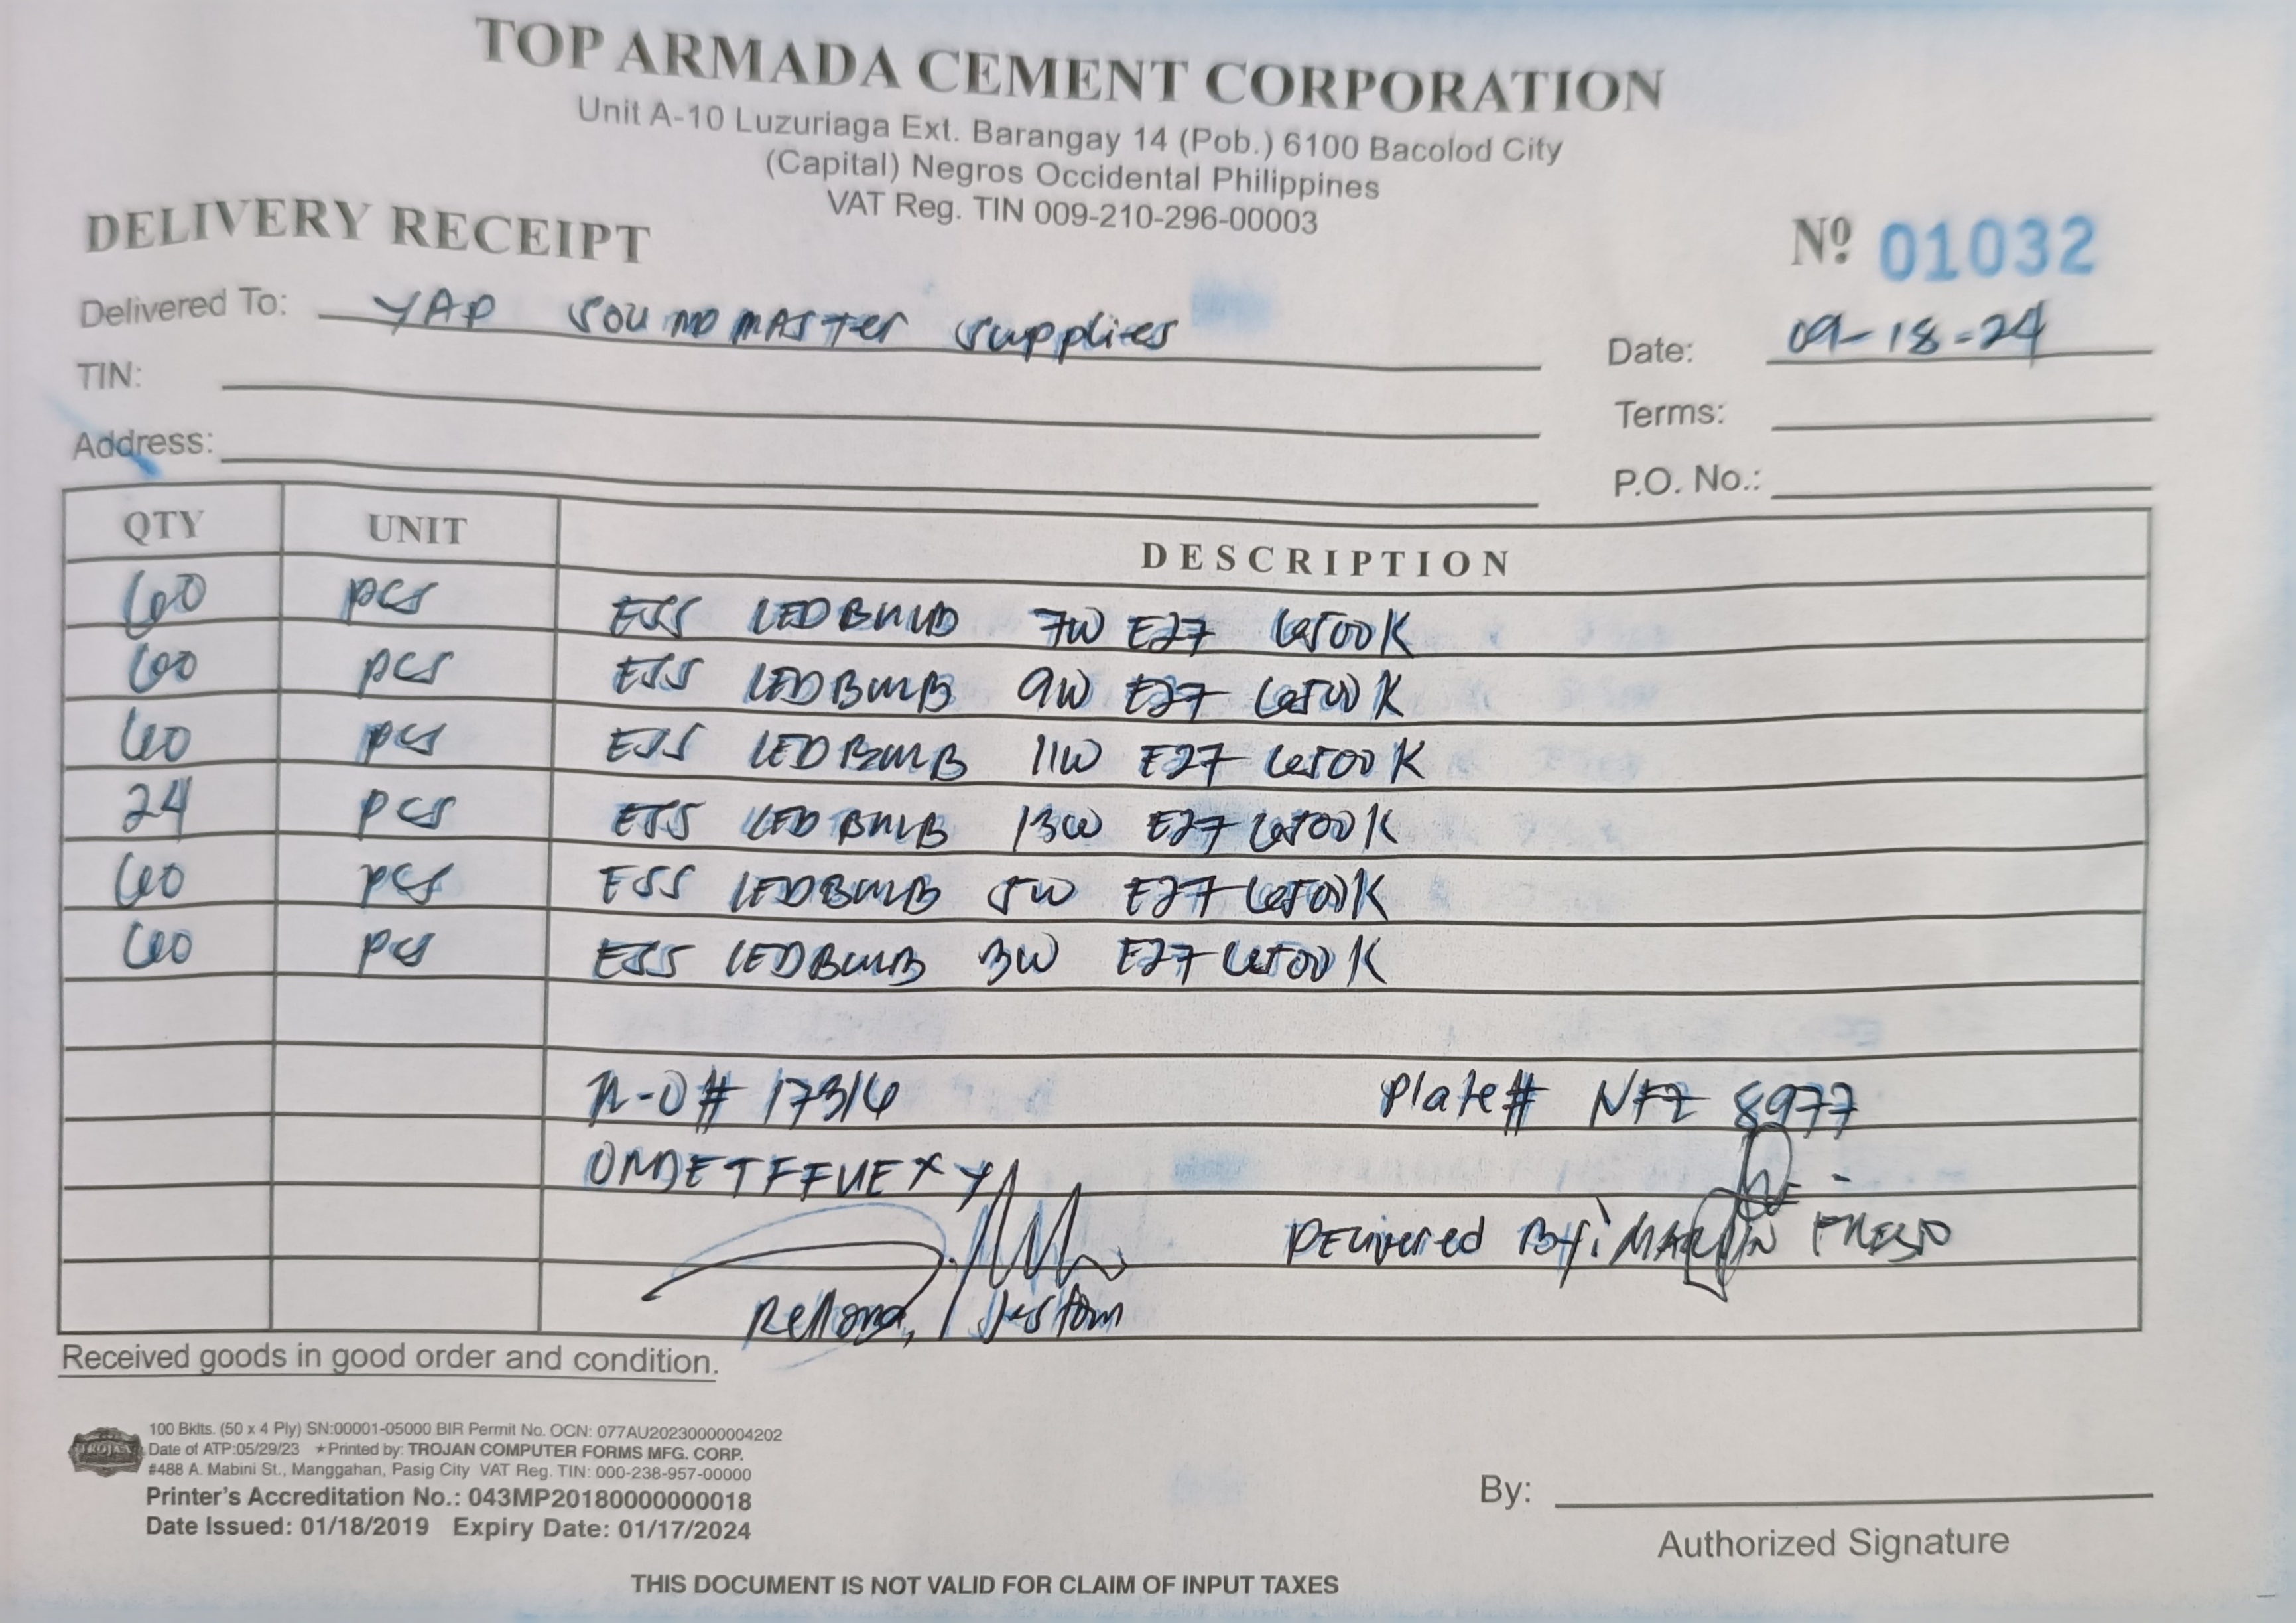 TOP ARMADA CEMENT CORPORATION
Unit A-10 Luzuriaga Ext. Barangay 14 (Pob.) 6100 Bacolod City
(Capital) Negros Occidental Philippines
VAT Reg. TIN 009-210-296-00003
DELIVERY RECEIPT
Nº 01032
Delivered To: YAP SOUNDMASTER Supplies
Date: 09-18-24
TIN:
Terms:
Address:
P.O. No.:
QTY UNIT DESCRIPTION
60 pcs ESS LEDBULB 7W E27 6500K
60 pcs ESS LEDBULB 9W E27 6500K
60 pcs ESS LEDBULB 11W E27 6500K
24 pcs ESS LEDBULB 13W E27 6500K
60 pcs ESS LEDBULB 5W E27 6500K
60 pcs ESS LEDBULB 3W E27 6500K
# 17316 Plate# NFZ 8977
Delivered By: MARVIN
Received goods in good order and condition.
100 Bklts. (50 x 4 Ply) SN:00001-05000 BIR Permit No. OCN: 077AU20230000004202
TROJAN
Date of ATP:05/29/23 ★Printed by: TROJAN COMPUTER FORMS MFG. CORP.
#488 A. Mabini St., Manggahan, Pasig City VAT Reg. TIN: 000-238-957-00000
Printer's Accreditation No.: 043MP20180000000018
Date Issued: 01/18/2019 Expiry Date: 01/17/2024
By:
Authorized Signature
THIS DOCUMENT IS NOT VALID FOR CLAIM OF INPUT TAXES